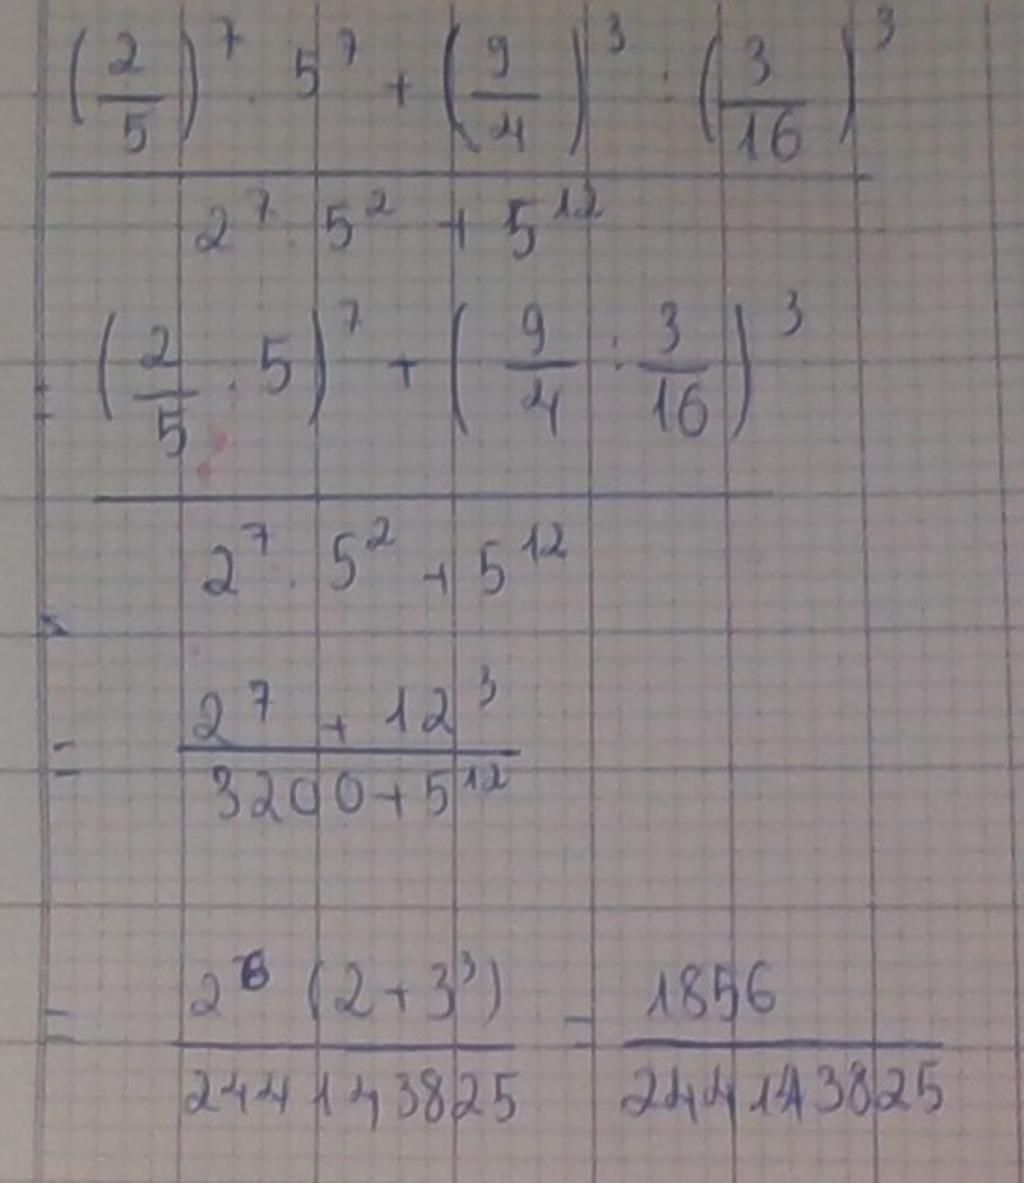 (2/5)^7 . 5^7 + (9/4)^3 : (3/16)^3
2^7 . 5^2 + 5^12
= (2/5 . 5)^7 + (9/4 : 3/16)^3
2^7 . 5^2 + 5^12
= 2^7 + 12^3
3200 + 5^12
= 2^6 (2 + 3^3) = 1856
244143825 244143825